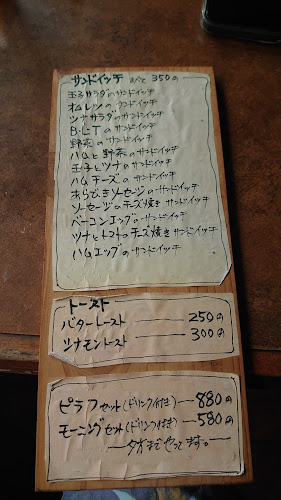 サンドイッチ すべて 350の
玉子サラダのサンドイッチ
オムレツのサンドイッチ
ツナサラダのサンドイッチ
B・L・Tのサンドイッチ
野菜のサンドイッチ
ハムと野菜のサンドイッチ
玉子とツナのサンドイッチ
ハムチーズのサンドイッチ
あらびきソーセージのサンドイッチ
ソーセージのチーズ焼きサンドイッチ
ベーコンエッグのサンドイッチ
ツナとトマトのチーズ焼きサンドイッチ
ハムエッグのサンドイッチ
トースト
バタートースト 250の
シナモントースト 300の
ピラフセット(ドリンク付) 880の
モーニングセット(ドリンク付き) 580の
夕方までやってます。